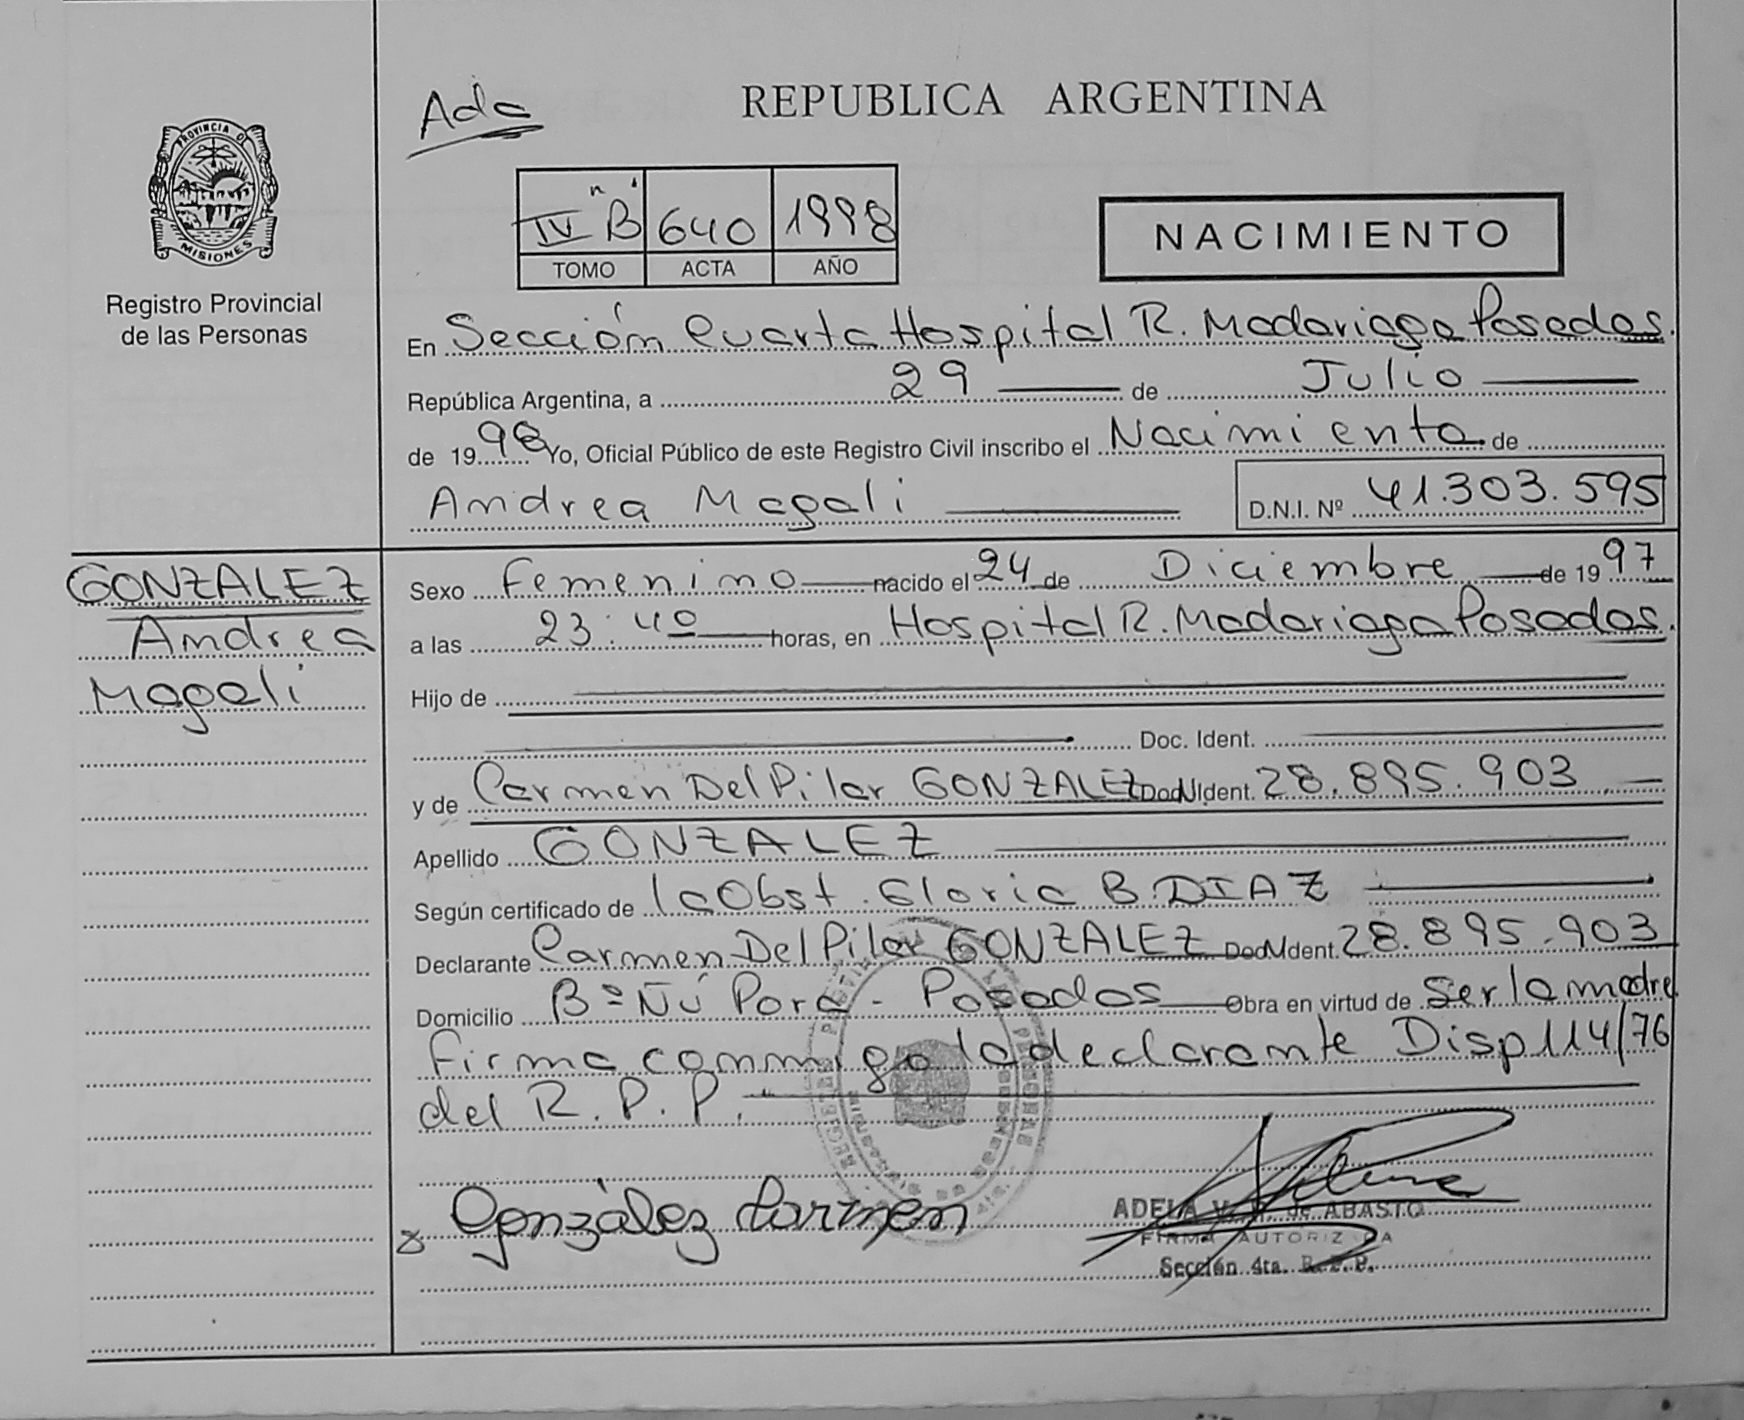 Ada
REPUBLICA ARGENTINA
PROVINCIA DE
MISIONES
Registro Provincial
de las Personas
IV "B" 640 1998
TOMO ACTA AÑO
NACIMIENTO
En Sección Cuarta Hospital R. Madariaga Posadas.
República Argentina, a 29 de Julio
de 1998 Yo, Oficial Público de este Registro Civil inscribo el Nacimiento de
Andrea Magali D.N.I. Nº 41.303.595
GONZALEZ
Andrea
Magali
Sexo Femenino nacido el 24 de Diciembre de 1997
a las 23:40 horas, en Hospital R. Madariaga Posadas.
Hijo de
Doc. Ident.
y de Carmen Del Pilar GONZALEZ Doc. Ident. 28.895.903
Apellido GONZALEZ
Según certificado de la Obst. Gloria B. DIAZ
Declarante Carmen Del Pilar GONZALEZ Doc. Ident. 28.895.903
Domicilio Bº Ñú Porá - Posadas Obra en virtud de Ser la madre
Firma conmigo la declarante Disp 114/76
del R. P. P.
x González Carmen
ADELA de ABASTO
FIRMA AUTORIZADA
Sección 4ta. R.P.P.